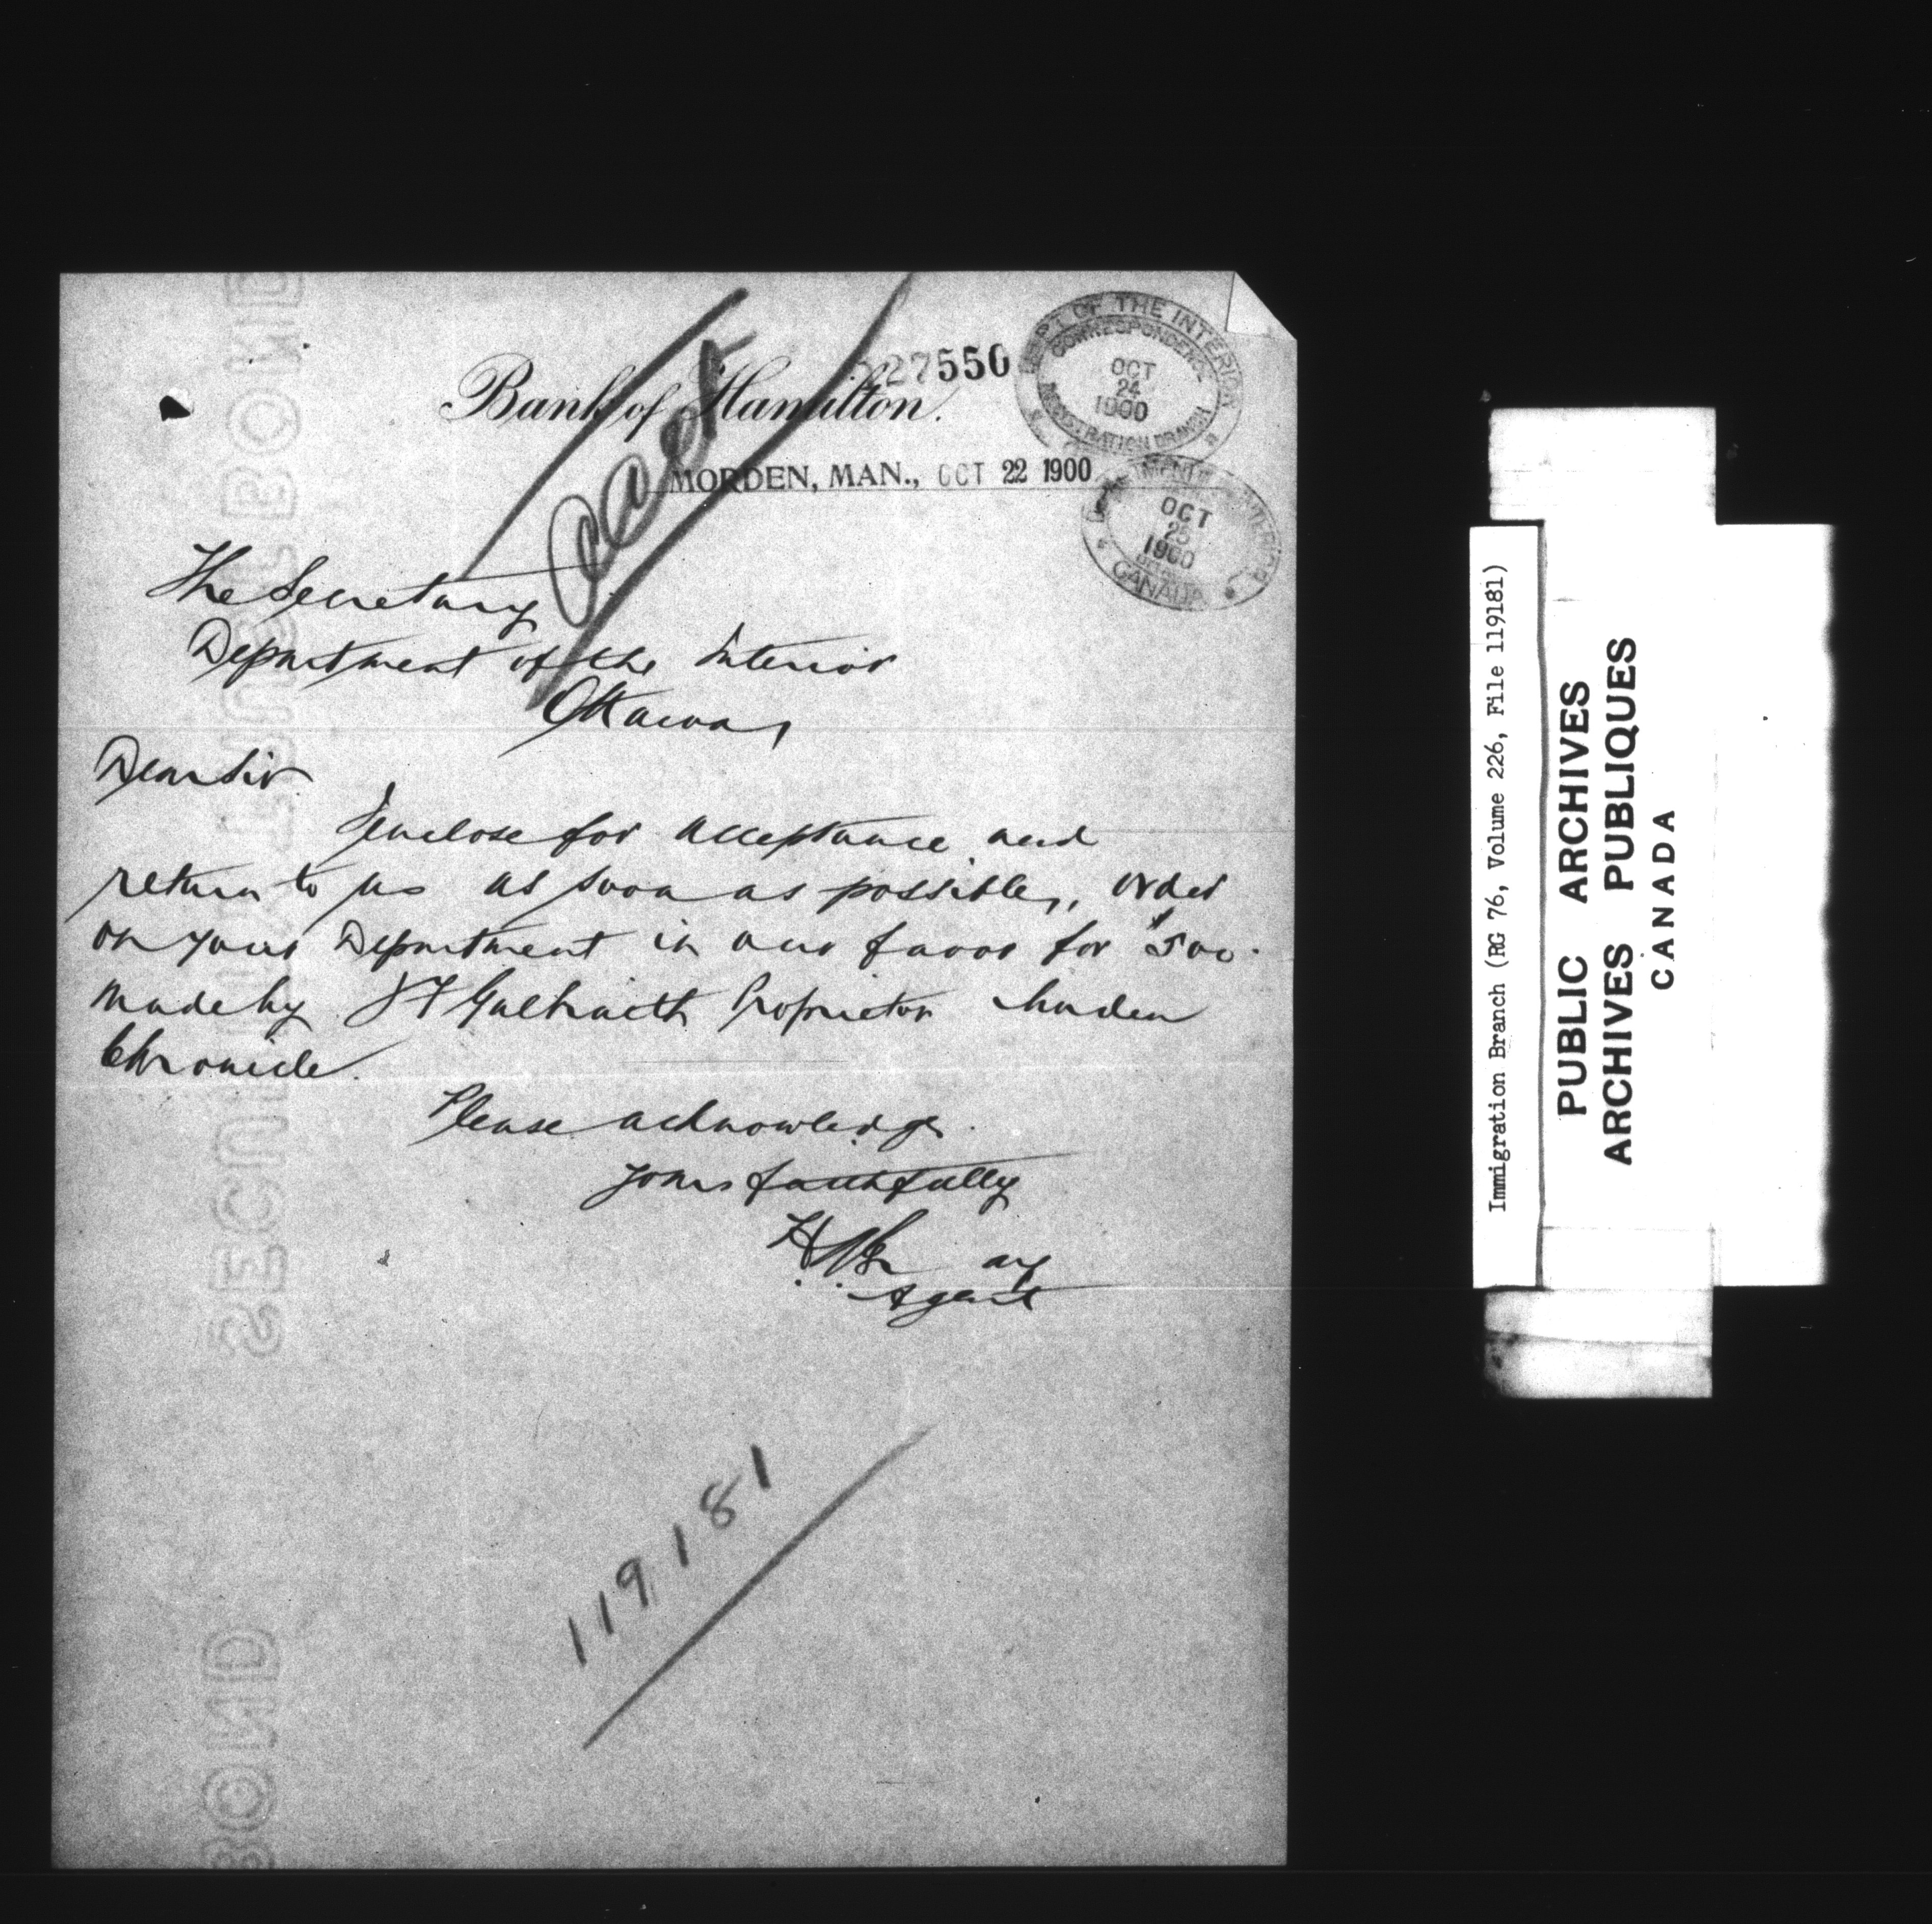 227550
Bank of Hamilton.
MORDEN, MAN., OCT 22 1900
DEPT OF THE INTERIOR
CORRESPONDENCE
OCT
24
1900
REGISTRATION BRANCH
OCT
25
1900
CANADA
The Secretary
Department of the Interior
Ottawa,
Dear Sir
I enclose for acceptance and
return to us as soon as possible, order
on your Department in our favor for $500.
made by J F Galbraith Proprietor Morden
Chronicle.
Please acknowledge.
Yours faithfully
Agent
119181
SECURITY TRUST BOND
BOND
Immigration Branch (RG 76, Volume 226, File 119181)
PUBLIC ARCHIVES
ARCHIVES PUBLIQUES
CANADA